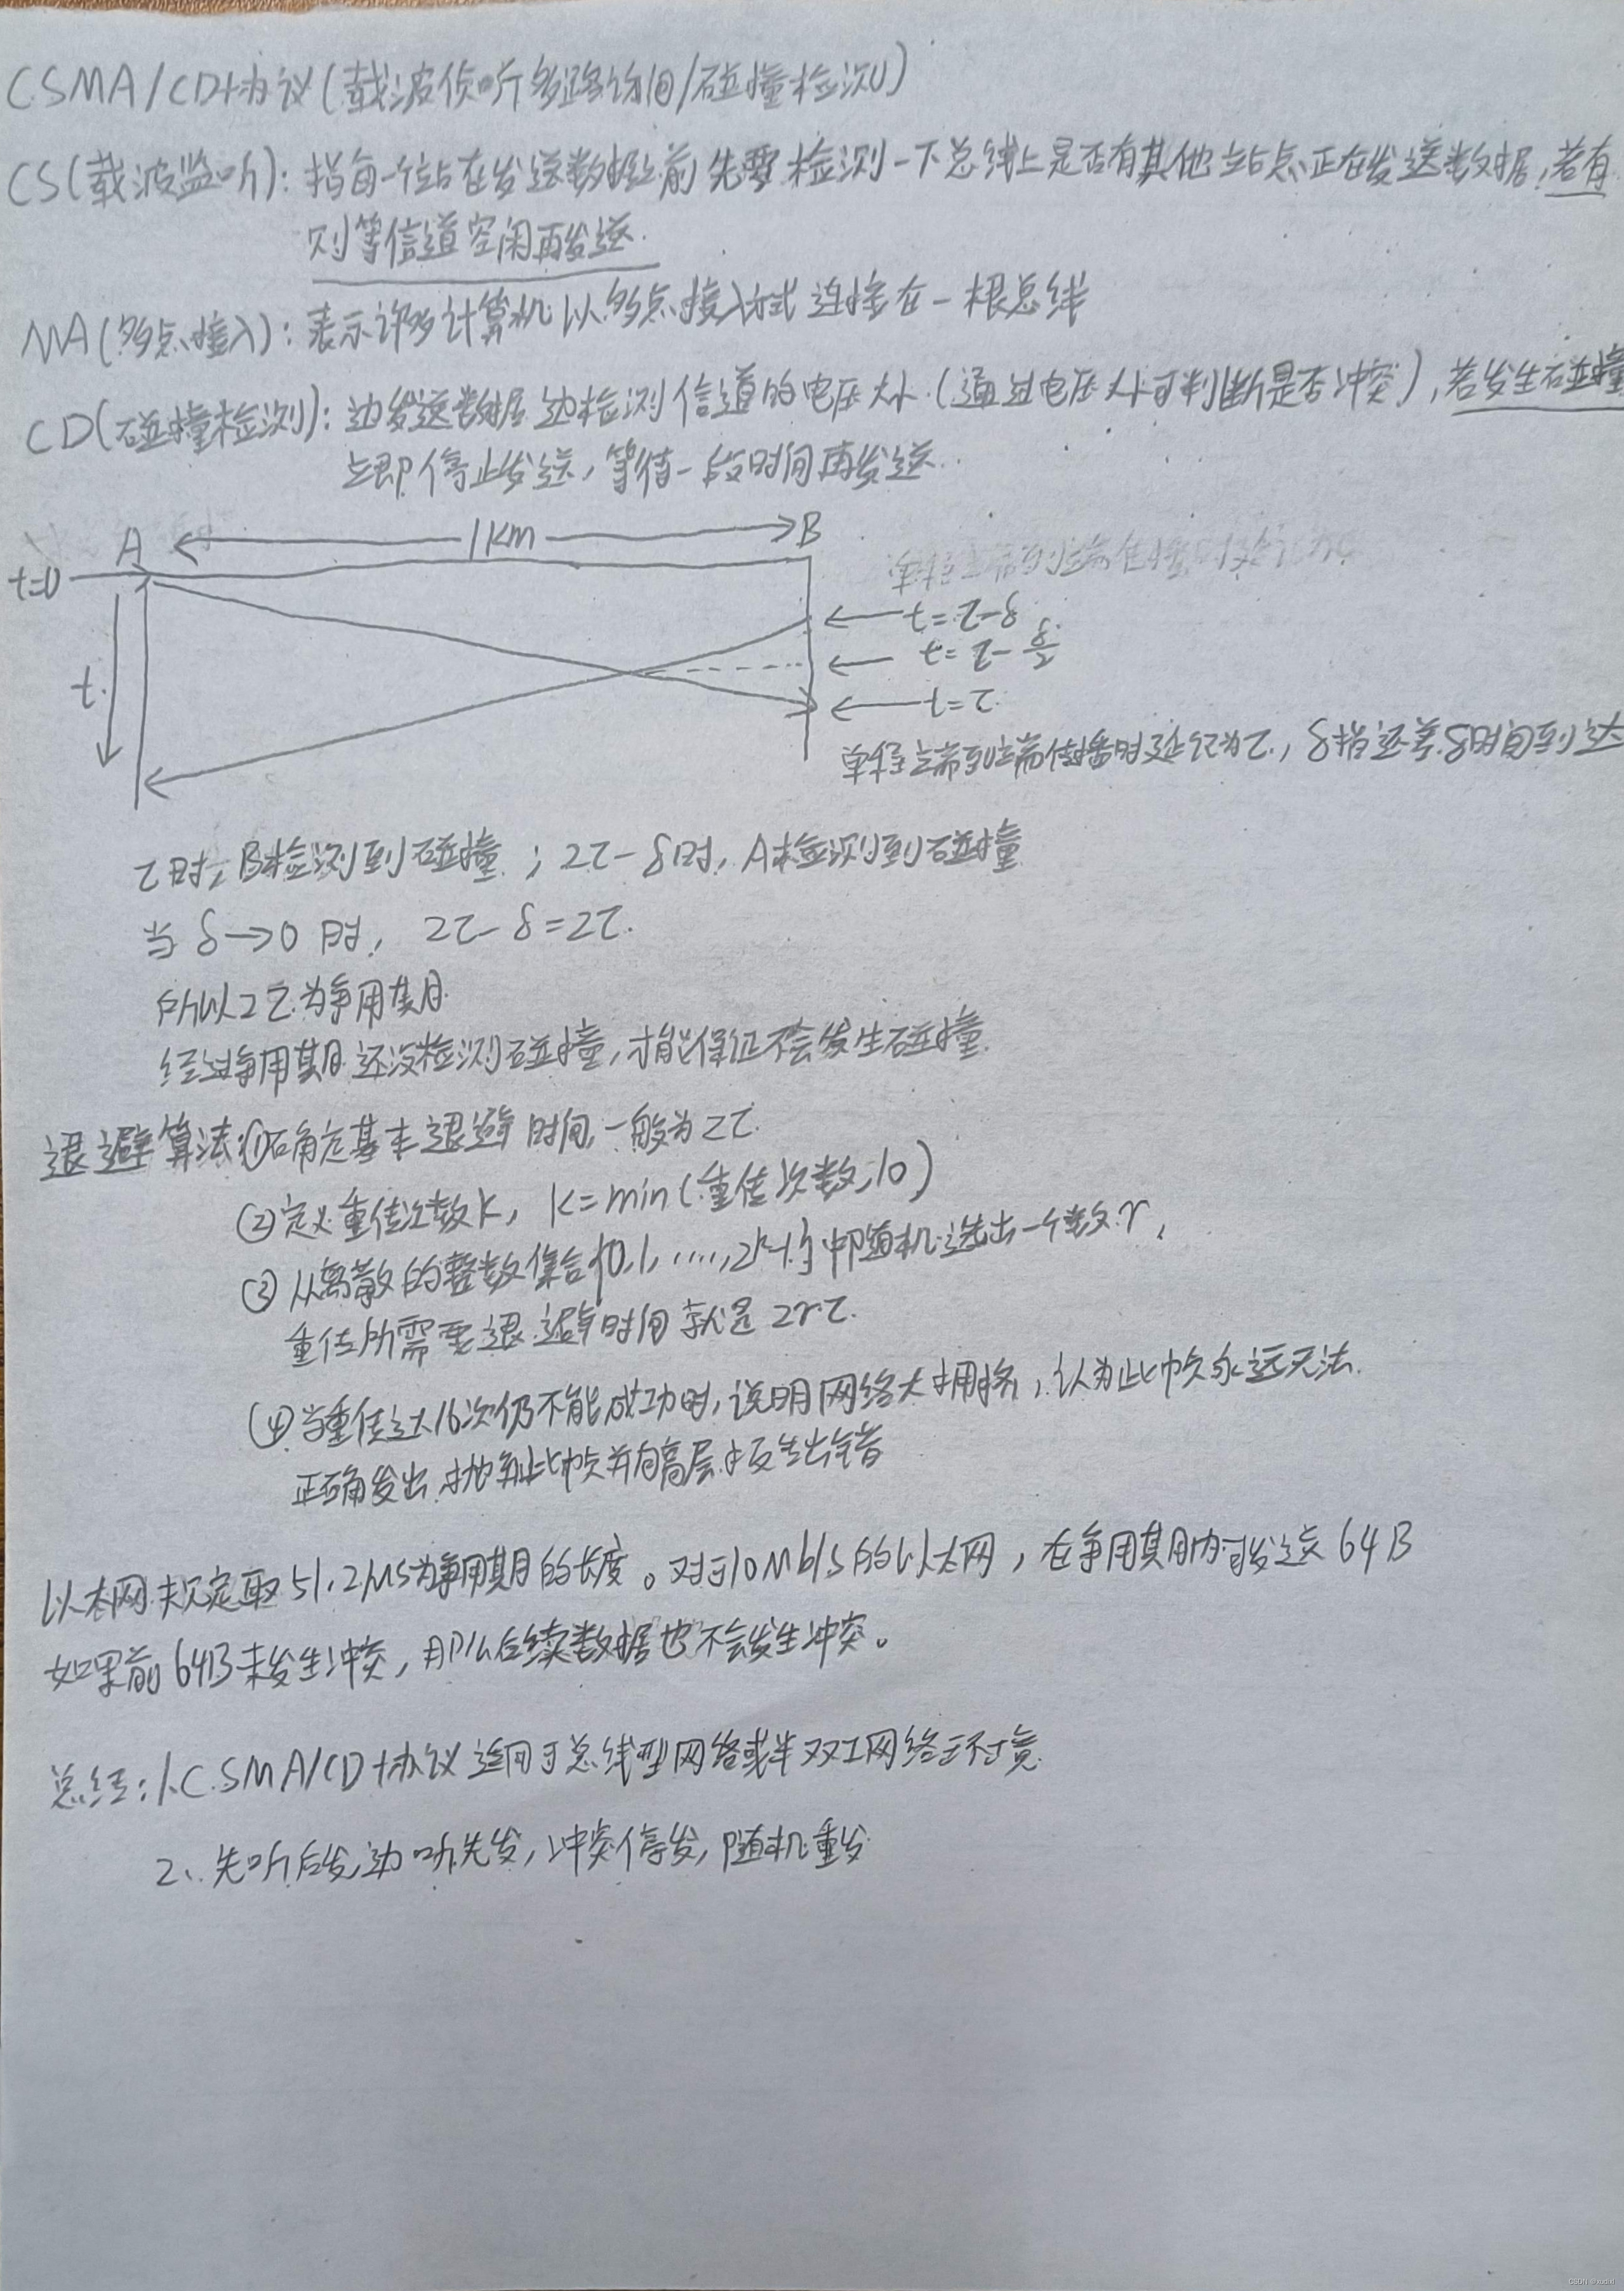 CSMA/CD协议(载波侦听多路访问/碰撞检测)
CS(载波监听): 指每一个站在发送数据之前先要检测一下总线上是否有其他站点正在发送数据,若有
则等信道空闲再发送.
MA(多点接入): 表示许多计算机以多点接入方式连接在一根总线
CD(碰撞检测): 边发送数据边检测信道的电压大小(通过电压大小可判断是否冲突),若发生碰撞
立即停止发送,等待一段时间再发送.
A 1km B
t=0
t=τ-δ
t=τ-δ/2
t
t=τ
单程端到端传播时延记为τ,
τ时,B检测到碰撞;2τ-δ时,A检测到碰撞
当δ→0时, 2τ-δ=2τ.
所以2τ为争用期.
经过争用期还没检测碰撞,才能保证不会发生碰撞.
退避算法:①确定基本退避时间,一般为2τ.
②定义重传次数k, k=min(重传次数,10)
③从离散的整数集合{0,1,....,2^k-1}中随机选出一个数r,
重传所需要退避时间就是2rτ.
④当重传达16次仍不能成功时,说明网络太拥挤,认为此帧永远无法
正确发出,抛弃此帧并向高层报告出错
以太网规定取51.2μs为争用期的长度。对于10Mb/s的以太网,在争用期内可发送64B
如果前64B未发生冲突,那么后续数据也不会发生冲突。
总结:1.CSMA/CD协议适用于总线型网络或半双工网络环境
2.先听后发,边听先发,冲突停发,随机重发
CSDN @xuchil